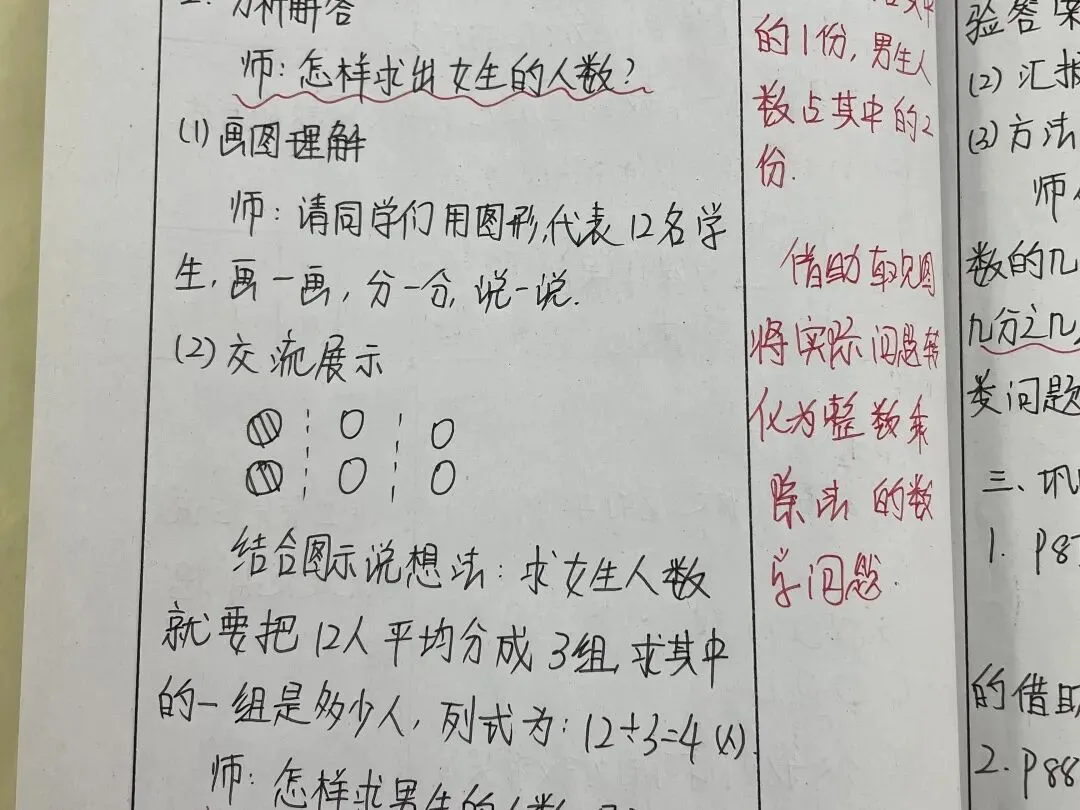 2. 分析解答
师：怎样求出女生的人数？
(1) 画图理解
师：请同学们用图形代表12名学
生，画一画，分一分，说一说.
(2) 交流展示
结合图示说想法：求女生人数
就要把12人平均分成3组，求其中
的一组是多少人，列式为：12÷3=4(人).
师：怎样求男生的人数
的1份，男生人
数占其中的2
份.
借助直观图
将实际问题转
化为整数乘
除法的数
学问题.
验答案
(2) 汇报
(3) 方法
师
数的几
几分之几
类问题
三、巩
1. P87
的借助
2. P88